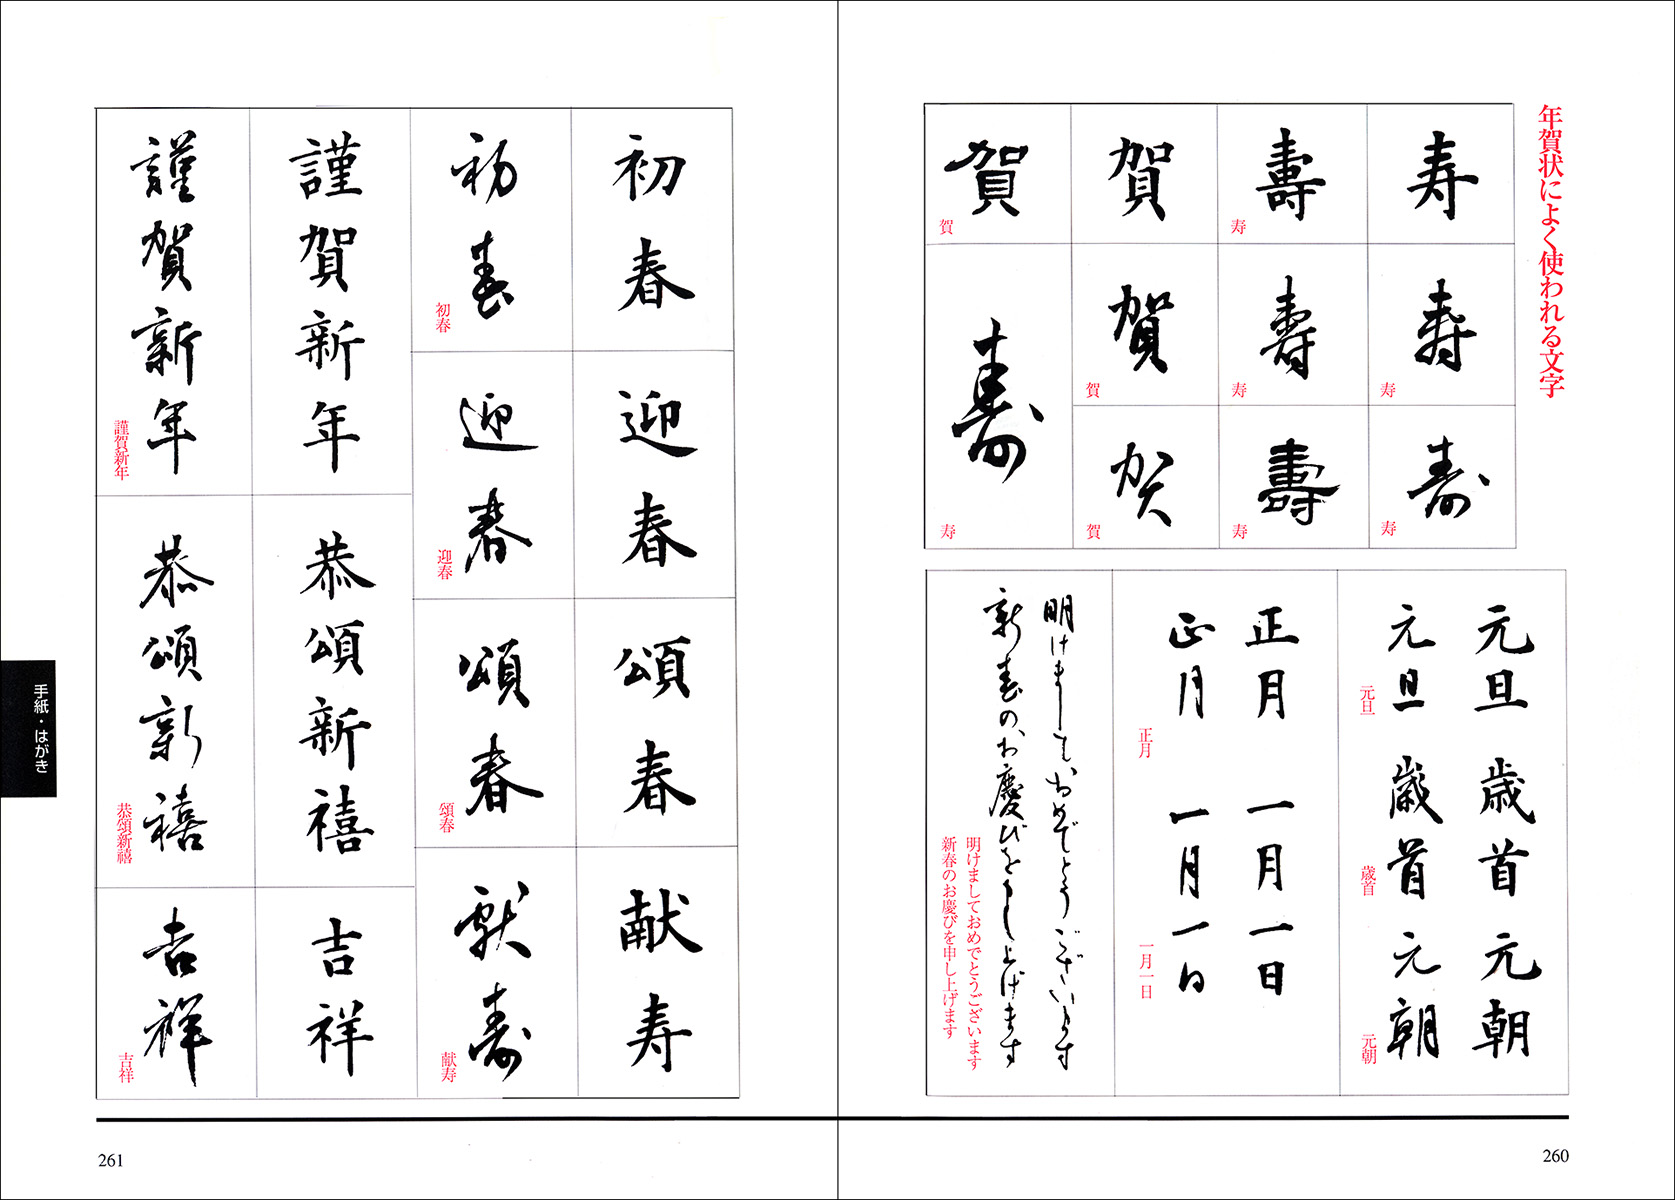 年賀状によく使われる文字
寿
壽
寿
賀
賀
寿
寿
壽
寿
賀
賀
寿
寿
壽
寿
賀
賀
寿
寿
元旦 歳首 元朝
元旦 歳首 元朝
元旦
歳首
元朝
正月 一月一日
正月 一月一日
正月
一月一日
明けましておめでとうございます
新春のお慶びを申し上げます
明けましておめでとうございます
新春のお慶びを申し上げます
260
初春
初春
初春
迎春
迎春
迎春
頌春
頌春
頌春
献寿
献寿
献寿
謹賀新年
謹賀新年
謹賀新年
恭頌新禧
恭頌新禧
恭頌新禧
吉祥
吉祥
吉祥
手紙・はがき
261